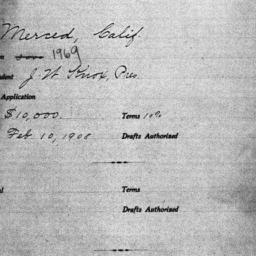 Merced, Calif.
1969
dent J. W. Knox, Pres.
Application
$10,000. Terms 10%
Feb 10, 1908 Drafts Authorized
Terms
Drafts Authorized